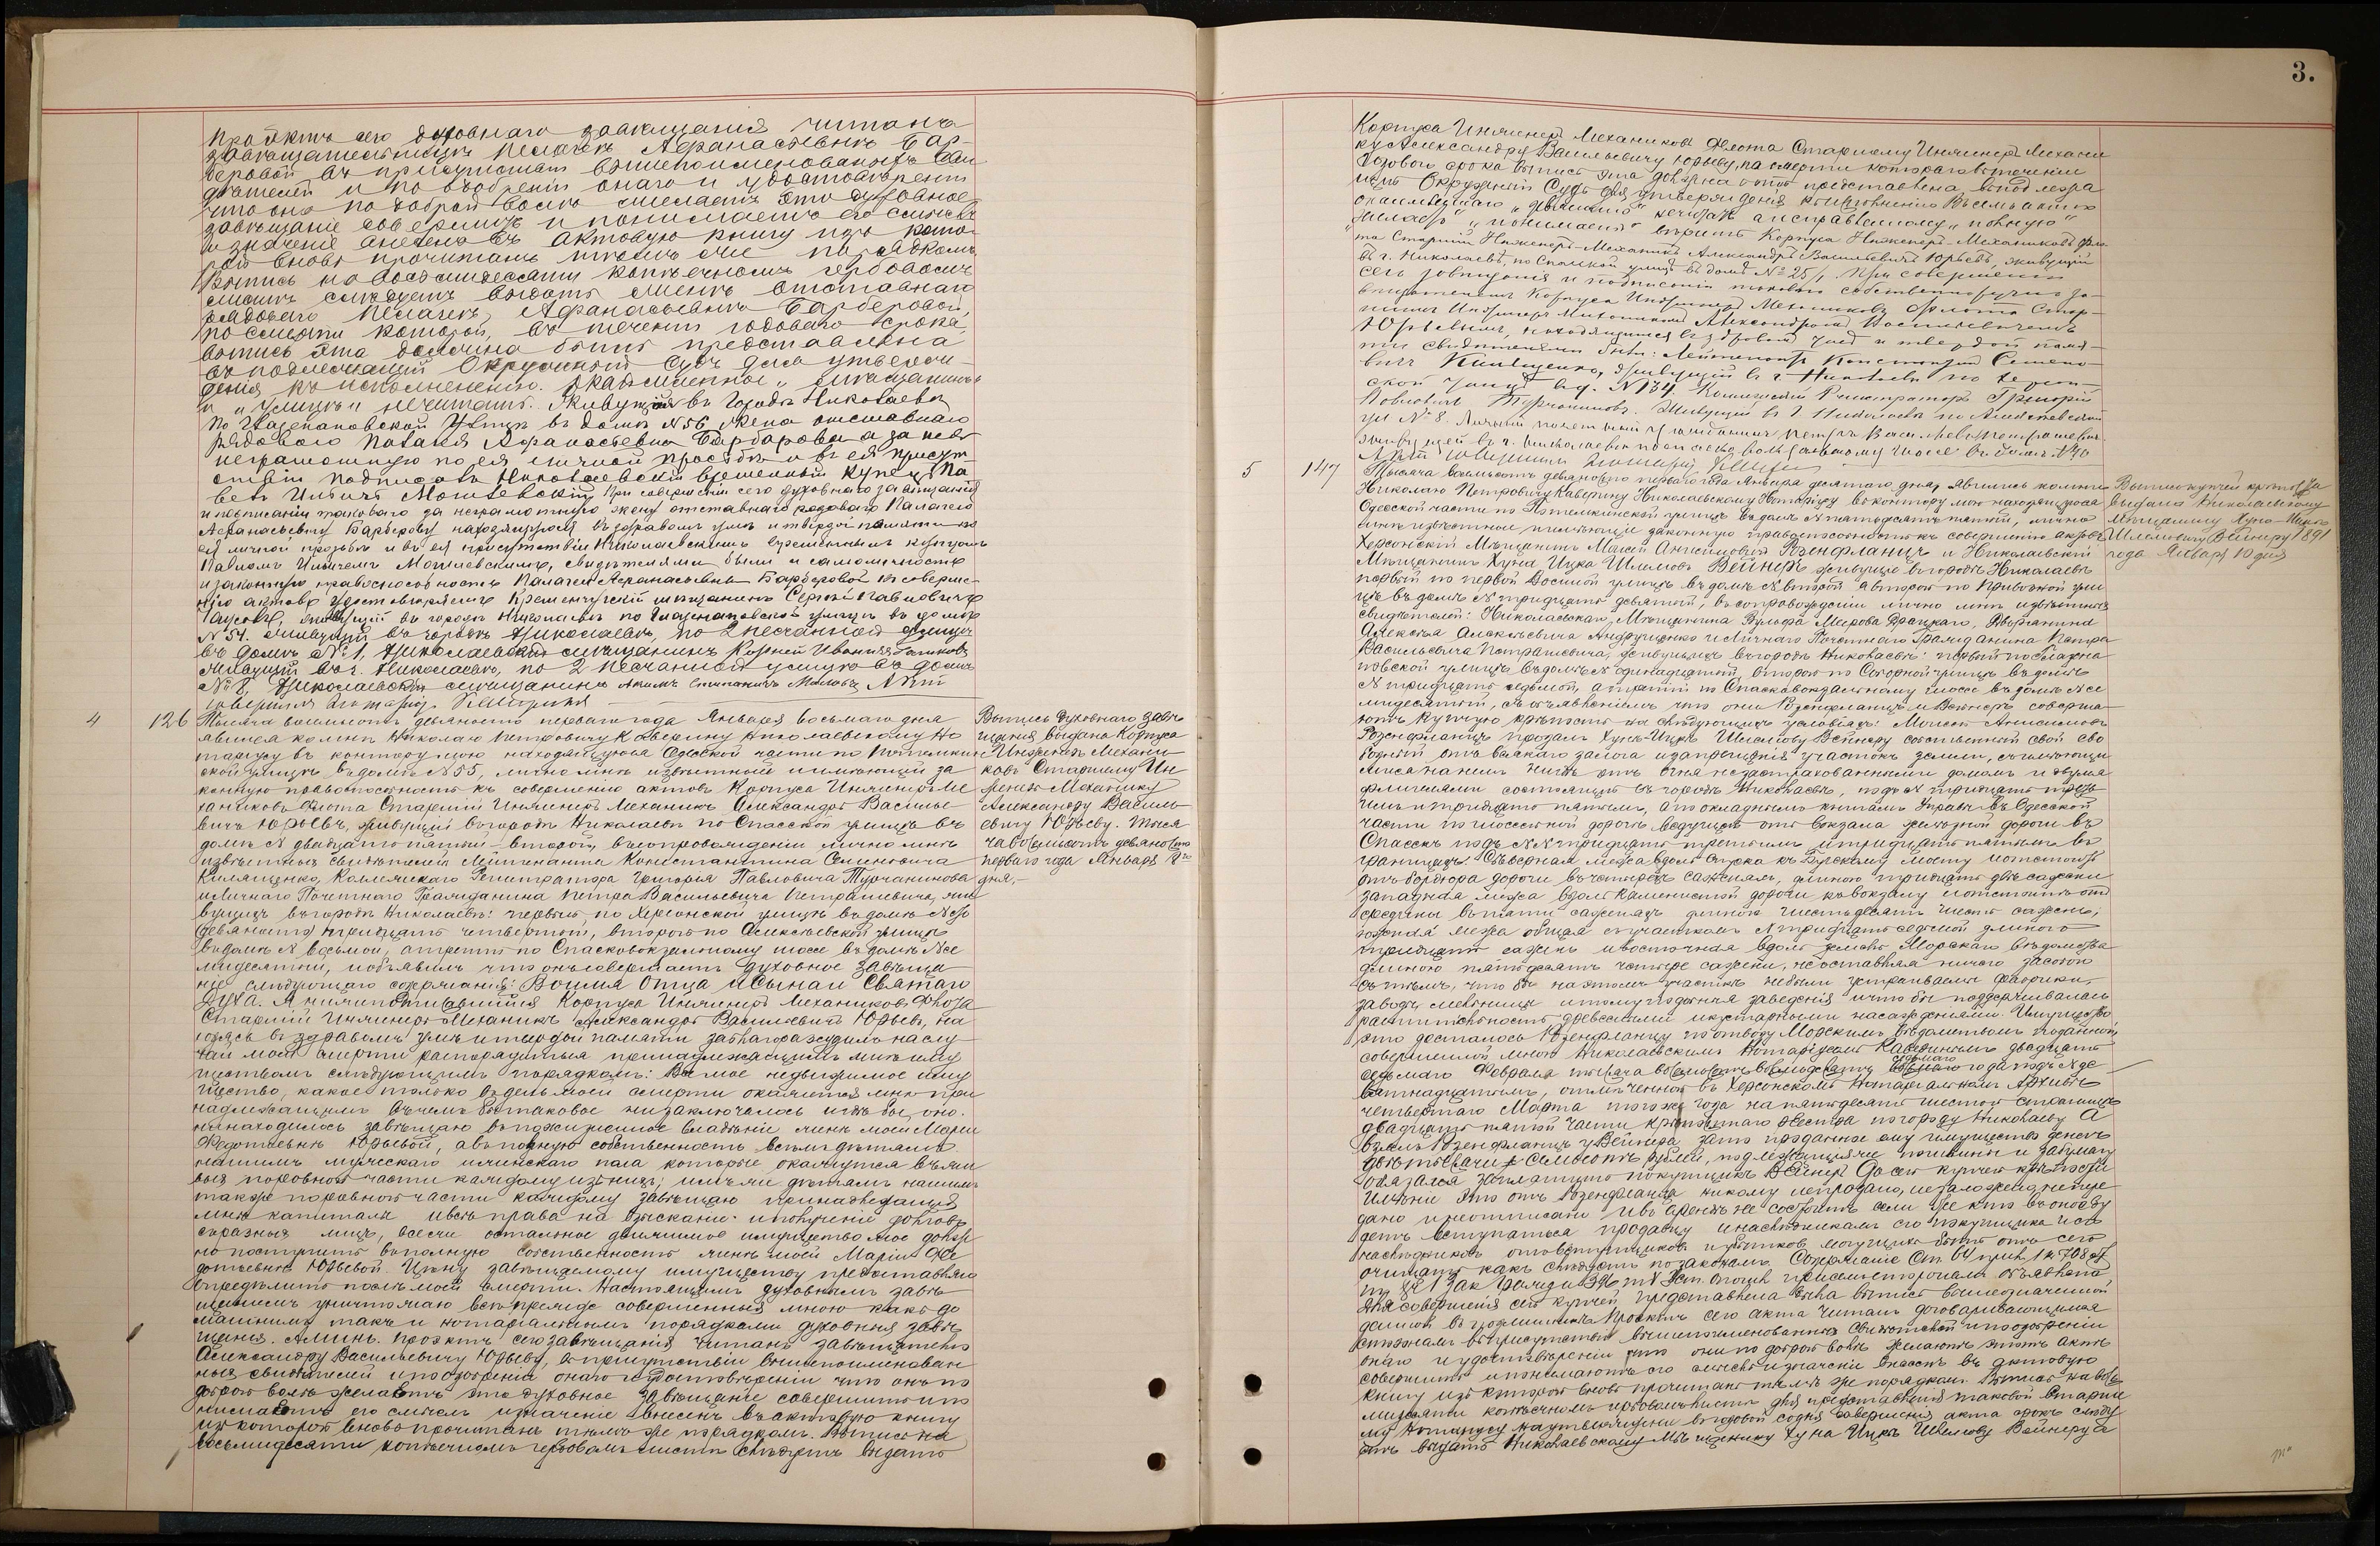 Проэктъ сего духовнаго завещанія читанъ
завещательницѣ Пелагеѣ Афанасьевнѣ Бар-
беровой въ присутствіи вышепоименованныхъ сви
дѣтелей и по одобреніи онаго и удостовѣреніи
что она по доброй волѣ желаетъ это духовное
завѣщаніе совершить и понимаетъ его смыслъ
и значеніе внесенъ въ актовую книгу изъ кото-
рой вновь прочитанъ тѣмъ же порядкомъ
Выпись на восьмидесяти копѣечномъ гербовомъ
листѣ слѣдуетъ выдать женѣ отставнаго
рядоваго Пелагеѣ Афанасьевнѣ Барберовой,
по смерти которой, въ теченіи годоваго срока,
выпись эта должна быть представлена
въ подлежащій Окружный Судъ для утверж-
денія къ исполненію.
и „улицѣ" нечитать. Живущая въ городѣ Николаевѣ
по Глазенаповской улицѣ въ домѣ №56 жена отставнаго
рядоваго Палагея Афанасьевна Барбарова а за нею
неграмотную по ея личной просьбѣ и въ ея присут
ствіи подписалъ Николаевскій временный купецъ Па
велъ Ильичъ Могилевскій При совершеніи сего духовнаго завещанія
и подписаніи таковаго за неграмотную жену отставнаго рядоваго Палагею
Афанасьевну Барберову находящуюся въ здравомъ умѣ и твердой памяти по
ея личной просьбѣ и въ ея присутствіи Николаевскимъ временнымъ купцомъ
Павломъ Ильичемъ Могилевскимъ, свидѣтелями были и самоличность
и законную правоспособность Палагеи Афанасьевны Барберовой къ соверше-
нію актовъ удостовѣряемъ Кременчугскій мѣщанинъ Сергѣй Павловичъ
живущій въ городѣ Николаевѣ по Глазенаповской улицѣ въ домѣ
№54. Живущій въ городѣ Николаевѣ, по 2 песчанной улицѣ
въ домѣ №1, Николаевскій мѣщанинъ Корней Ивановъ
Живущій въ г. Николаевѣ, по 2 Песчанной улицѣ въ домѣ
№8, Николаевскій мѣщанинъ Акимъ Степановичъ Актъ
совершилъ Нотаріусъ
4 126 Тысяча восемьсотъ девяносто перваго года Января восьмаго дня
явился ко мнѣ Николаю Петровичу Каверину Николаевскому Но
таріусу въ контору мою находящуюся Одесской части по Потемкин
ской улицѣ въ домѣ №55, лично мнѣ извѣстный и имѣющій за
конную правоспособность къ совершенію актовъ Корпуса Инженеръ Ме
ханиковъ Флота Старшій Инженеръ Механикъ Александръ Василье
вичъ Юрьевъ, живущій въ городѣ Николаевѣ по Спасской улицѣ въ
домѣ № двадцать пятый второй, въ сопровожденіи лично мнѣ
извѣстныхъ свидѣтелей Лейтенанта Константина Семеновича
Килященко, Коллежскаго Регистратора Григорія Павловича Турчанинова
и Личнаго Почетнаго Гражданина Петра Васильевича Петрашевича, жи
вущихъ въ городѣ Николаевѣ: первый, по Херсонской улицѣ въ домѣ №
(девяносто) тридцать четвертый, второй по Алексѣевской улицѣ
въ домѣ № восьмой, а третій по Спасковокзальному шоссе въ домѣ № се
мидесятый, и объявилъ что онъ совершаетъ духовное завѣща
ніе слѣдующаго содержанія: Во имя Отца и Сына и Святаго
Духа. Я нижеподписавшійся Корпуса Инженеръ Механиковъ Флота
Старшій Инженеръ-Механикъ Александръ Васильевичъ Юрьевъ, на
ходясь въ здравомъ умѣ и твердой памяти заблагоразсудилъ на слу
чай моей смерти распорядиться принадлежащимъ мнѣ иму
ществомъ слѣдующимъ порядкомъ: Все мое недвижимое иму
щество, какое только въ день моей смерти окажется мнѣ при
надлежащимъ въ чемъ бы таковое ни заключалось и гдѣ бы оно
не находилось завѣщаю въ пожизненное владѣніе женѣ моей Маріи
Федотьевнѣ Юрьевой, а въ полную собственность всѣмъ дѣтямъ
нашимъ мужескаго и женскаго пола которые окажутся въ жи
выхъ поровной части каждому изъ нихъ; имъ же дѣтямъ нашимъ
также поравной части каждому завѣщаю принадлежащіе
мнѣ капиталы и всѣ права на взысканіе и полученіе долговъ
съ разныхъ лицъ, все же остальное движимое имущество мое долж
но поступить въ полную собственность жены моей Маріи Фе
дотьевны Юрьевой. Цѣну завѣщаемому имуществу предоставляю
опредѣлить послѣ моей смерти. Настоящимъ духовнымъ завѣ
щаніемъ уничтожаю всѣ прежде совершенныя мною какъ до
машнимъ такъ и нотаріальнымъ порядкомъ духовныя завѣ
щанія. Аминь. Проэктъ сего завѣщанія читанъ завѣщателю
Александру Васильевичу Юрьеву, въ присутствіи вышепоименован
ныхъ свидѣтелей и по одобреніи онаго и удостовѣреніи что онъ по
доброй волѣ желаетъ это духовное завѣщаніе совершить и по
нимаетъ его смыслъ и значеніе внесенъ въ актовую книгу
изъ которой вновь прочитанъ тѣмъ же порядкомъ. Выпись на
восьмидесяти копѣечномъ гербовомъ листѣ слѣдуетъ выдать
Выпись духовнаго завѣ
щанія выдана Корпуса
Инженеръ Механи
ковъ Старшему Ин
женеръ Механику
Александру Василь
евичу Юрьеву. Тыся
ча восемьсотъ девяносто
перваго года Января 8го
дня.
3.
Корпуса Инженеръ Механиковъ Флота Старшему Инженеръ Механи
ку Александру Васильевичу Юрьеву, по смерти котораго въ теченіи
годоваго срока выпись эта должна быть представлена въ подлежа
щій Окружный Судъ для утвержденія къ исполненію
„желаетъ" „понимаетъ" вѣрить Корпуса Инженеръ-Механиковъ фло
та Старшій Инженеръ-Механикъ Александръ Васильевичъ Юрьевъ, живущій
въ г. Николаевѣ, по Спасской улицѣ въ домѣ №25/. При совершеніи
сего завѣщанія и подписаніи таковаго собственноручно за-
вѣщателемъ Корпуса Инженеръ Механиковъ Флота Стар-
шимъ Инженеръ Механикомъ Александромъ Васильевичемъ
Юрьевымъ, находящимся въ здравомъ умѣ и твердой памя-
ти свидѣтелями были: Лейтенантъ Константинъ Семено-
вичъ Килященко, живущій въ г. Николаевѣ по Херсон-
ской улицѣ въ д. №134. Коллежскій Регистраторъ Григорій
Павловичъ Турчаниновъ. Живущій въ г. Николаевѣ по Алексѣевской
ул. №8. Личный почетный гражданинъ Петръ Васильевичъ Петрашевичъ
живущій въ г. Николаевѣ по Спасковокзальному шоссе въ домѣ №70
Актъ совершилъ Нотаріусъ
5 147 Тысяча восемьсотъ девяносто перваго года Января десятаго дня, явились ко мнѣ
Николаю Петровичу Каверину Николаевскому Нотаріусу въ контору мою находящуюся
Одесской части по Потемкинской улицѣ въ домѣ № пятьдесятъ пятый, лично
мнѣ извѣстные и имѣющіе законную правоспособность къ совершенію актовъ
Херсонскій Мѣщанинъ Моисей Анисимовичъ Розенфланцъ и Николаевскій
Мѣщанинъ Хуна Ицко Шлемовъ Вейнеръ живущіе въ городѣ Николаевѣ
первый по первой Военной улицѣ въ домѣ № второй а второй по Привозной ули
цѣ въ домѣ № тридцать девятый, въ сопровожденіи лично мнѣ извѣстныхъ
свидѣтелей: Николаевскаго Мѣщанина Вульфа Меерова Драцкаго, Дворянина
Алексѣя Алексѣевича Андрущенко и Личнаго Почетнаго Гражданина Петра
Васильевича Петрашевича, живущихъ въ городѣ Николаевѣ: первый по Глазена
повской улицѣ въ домѣ № одинадцатый, второй по Соборной улицѣ въ домѣ
№ тридцать седьмой, а третій по Спасковокзальному шоссе въ домѣ № се
мидесятый, съ объявленіемъ что они Розенфланцъ и Вейнеръ соверша
ютъ купчую крѣпость на слѣдующихъ условіяхъ: Моисей Анисимовъ
Розенфланцъ продалъ Хунѣ-Ицкѣ Шлемову Вейнеру собственный свой сво
бодный отъ всякаго залога и запрещенія участокъ земли, съ имѣющи
мися на немъ нигдѣ отъ огня незастрахованными домомъ и двумя
флигелями состоящій въ городѣ Николаевѣ, подъ № тридцать треть
имъ и тридцать пятымъ, а по окладнымъ книгамъ Управы въ Одесской
части по шоссейной дорогѣ ведущей отъ вокзала желѣзной дороги въ
Спасскъ подъ №№ тридцать третьимъ и тридцать пятымъ въ
границахъ: Сѣверная межа вдоль спуска къ Бугскому мосту и отстоитъ
отъ бордюра дороги въ четырехъ саженяхъ, длиною тридцать двѣ сажени
западная межа вдоль каменистой дороги къ вокзалу и отстоитъ отъ
средины въ пяти саженяхъ длиною шестьдесятъ шесть сажень;
южная межа общая съ участкомъ № тридцать седьмой длиною
тридцать сажень и восточная вдоль земли Морскаго вѣдомства
длиною пятьдесятъ четыре сажени, не оставляя ничего за собою
съ тѣмъ, что бы на этомъ участкѣ не были устраиваемы фабрики,
заводы, мельницы и тому подобныя заведенія и что бы поддерживалась
растительность древесными и кустарными насажденіями. Имущество
это досталось Розенфланцу по отводу Морскимъ Вѣдомствомъ и по данной
совершенной мною Николаевскимъ Нотаріусомъ Каверинымъ двадцать
седьмаго Февраля тысяча восемьсотъ восемьдесятъ седьмаго года подъ № де
вятнадцатымъ, отмѣченной въ Херсонскомъ Нотаріальномъ Архивѣ
четвертаго Марта того же года на пятьдесятъ шестой страницѣ
двадцать пятой части крѣпостнаго реестра по городу Николаеву А
взялъ Розенфланцъ у Вейнера за то проданное ему имущество денегъ
двѣ тысячи семьсотъ рублей, подлежащія же пошлины и за бумагу
обязался заплатить покупщикъ Вейнеръ До сей купчей крѣпости
имѣніе это отъ Розенфланца никому непродано, не заложено, непере
дано и неотписано и въ арендѣ не состоитъ если же кто въ оное бу
детъ вступаться продавцу и наслѣдникамъ его покупщика и его
наслѣдниковъ отъ вступщиковъ и убытковъ могущихъ быть отъ сего
очищать какъ слѣдуетъ по законамъ. Содержаніе Ст. 64 прил. 1 къ 708 ст
Для совершенія сей купчей представлена была выпись вышеозначенной
данной въ подлинникѣ Проэктъ сего акта читанъ договаривающимся
сторонамъ въ присутствіи вышепоименованныхъ свидѣтелей и по одобреніи
онаго и удостовѣреніи что они по доброй волѣ желаютъ этотъ актъ
совершить и понимаютъ его смыслъ и значеніе внесенъ въ актовую
книгу изъ которой вновь прочитанъ тѣмъ же порядкомъ. Выпись на восе
мидесяти копѣечномъ гербовомъ листѣ для представленія таковой Старше
му Нотаріусу на утвержденіе въ годовой со дня совершенія акта срокъ слѣду
етъ выдать Николаевскому Мѣщанину Хуна Ицкѣ Шлемову Вейнеру а
Выпись купчей крѣпости
выдана Николаевскому
Мѣщанину Хуна-Ицко
Шлемовичу Вейнеру 1891
года Января 10 дня